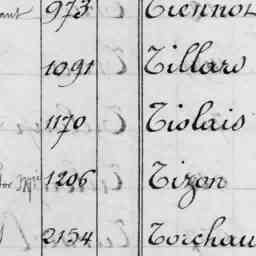 973 Tiennot
1091 Tillard
1170 Tiolais
1206 Tizon
2154 Torchau